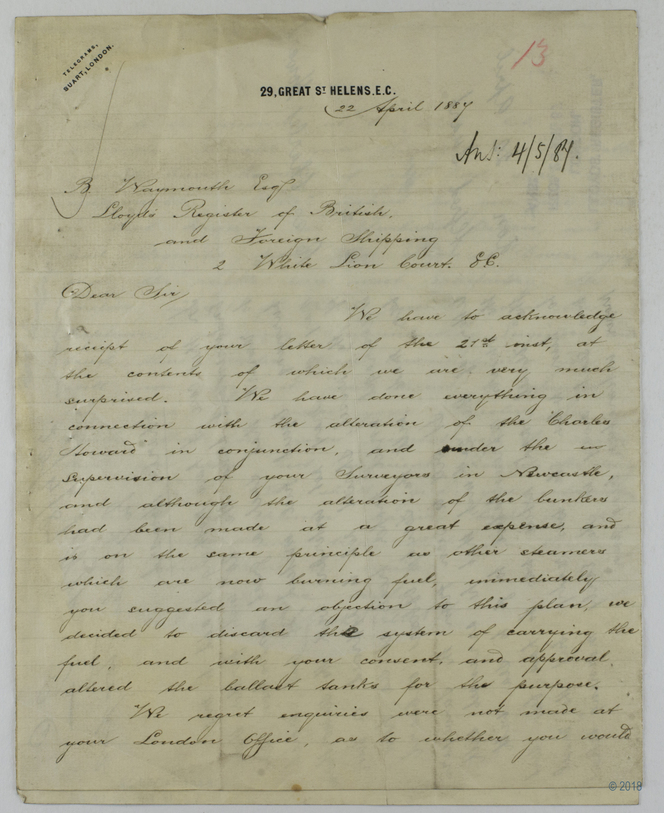 TELEGRAMS,
SUART, LONDON.
13
29, GREAT ST HELENS. E.C.
22 April 1887
Ans: 4/5/87.
B. Waymouth Esqr
Lloyd's Register of British,
and Foreign Shipping
2 White Lion Court. E.C.
Dear Sir,
We have to acknowledge
receipt of your letter of the 21st inst, at
the contents of which we are very much
surprised. We have done everything in
connection with the alteration of the "Charles
Howard" in conjunction, and under the
Supervision of your Surveyors in Newcastle,
and although the alteration of the bunkers
had been made at a great expense, and
is on the same principle as other steamers
which are now burning fuel, immediately
you suggested an objection to this plan, we
decided to discard the system of carrying the
fuel, and with your consent, and approval,
altered the ballast tanks for the purpose.
We regret enquiries were not made at
your London Office, as to whether you would
© 2018